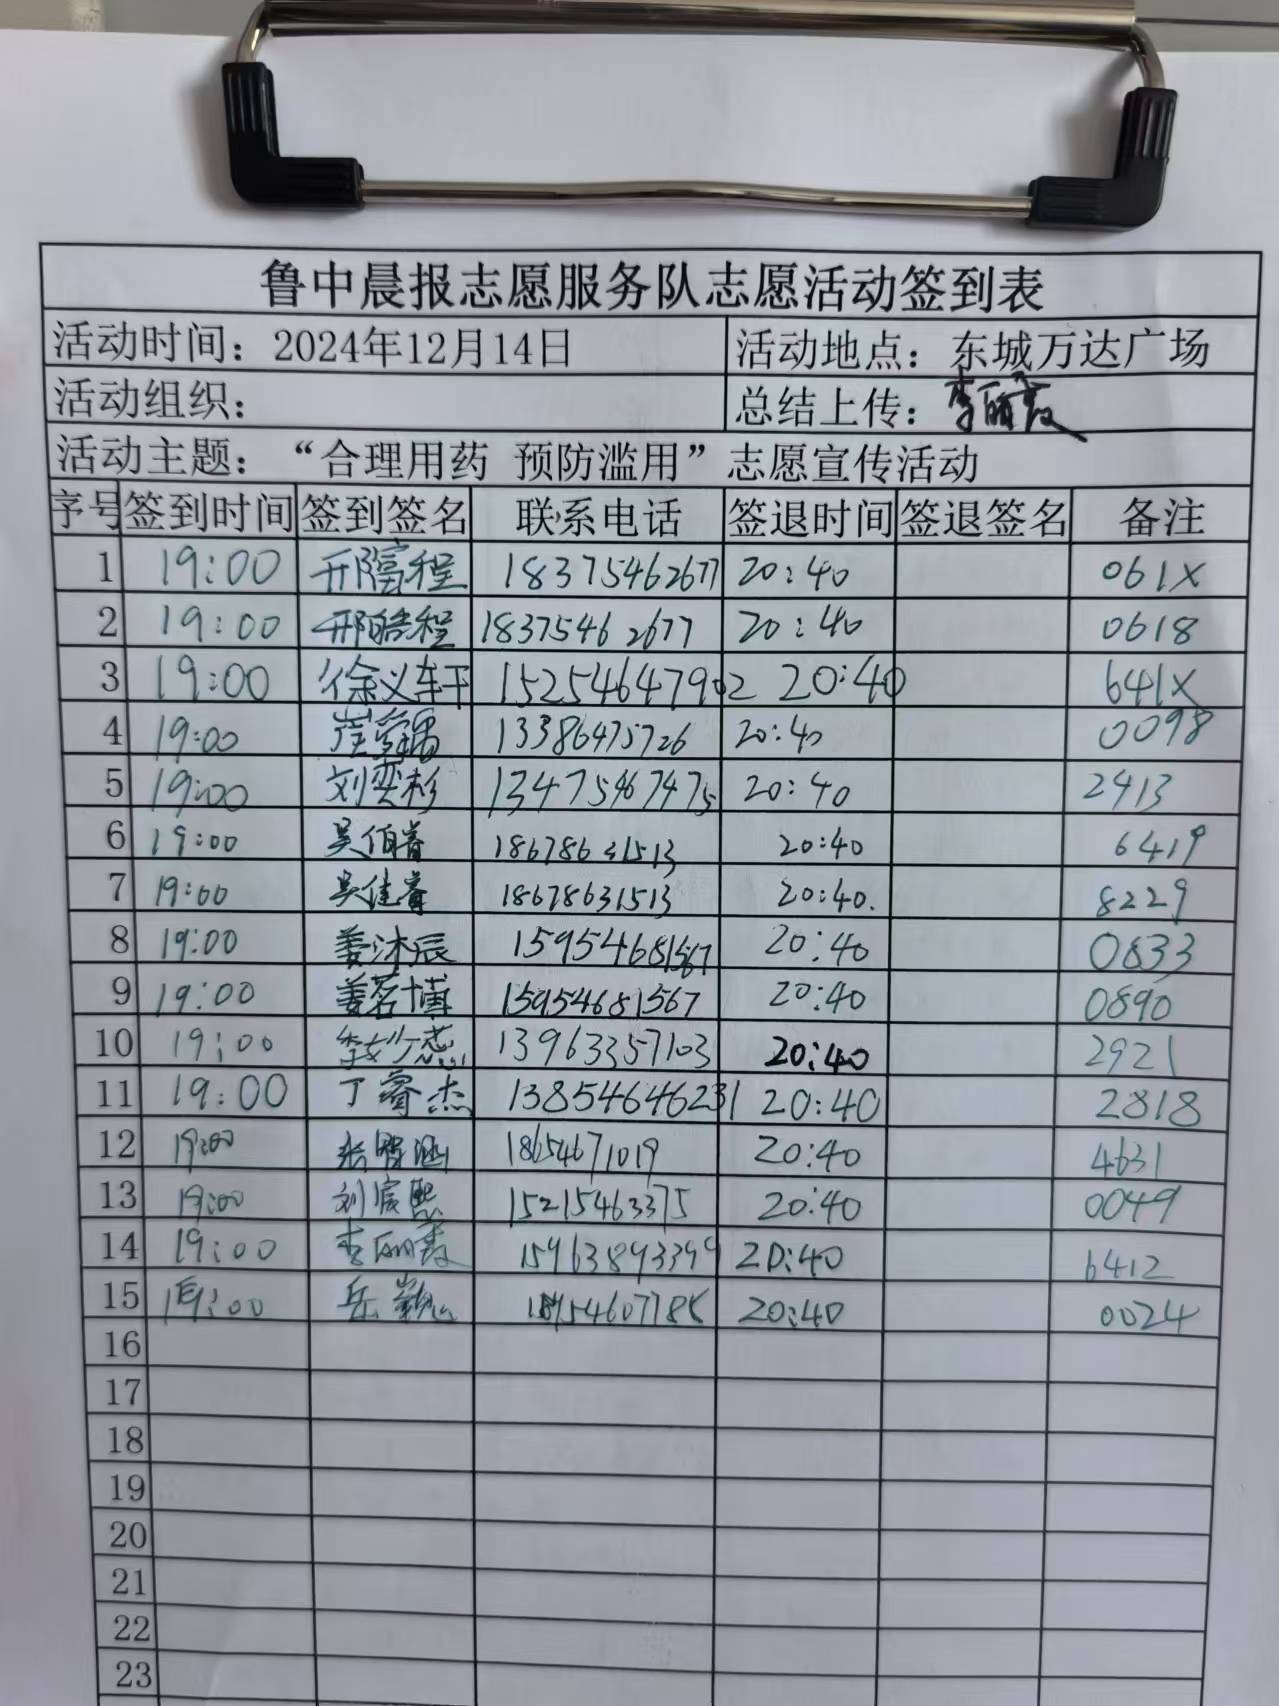 鲁中晨报志愿服务队志愿活动签到表
活动时间：2024年12月14日 活动地点：东城万达广场
活动组织： 总结上传：李丽霞
活动主题：“合理用药 预防滥用”志愿宣传活动
序号 签到时间 签到签名 联系电话 签退时间 签退签名 备注
1 19:00 邢富程 18375462677 20:40 061X
2 19:00 邢皓程 18375462677 20:40 0618
3 19:00 徐义轩 15254647902 20:40 641X
4 19:00 13386475726 20:40 0098
5 19:00 刘奕杉 13475467475 20:40 2413
6 19:00 吴佰睿 18678631513 20:40 6419
7 19:00 吴佳睿 18678631513 20:40. 8229
8 19:00 姜沐辰 15954681567 20:40 0833
9 19:00 姜茗博 15954681567 20:40 0890
10 19:00 13963357103 20:40 2921
11 19:00 丁睿杰 13854646231 20:40 2818
12 19:00 18654671019 20:40 4631
13 19:00 刘宸熙 15215463375 20:40 0049
14 19:00 李丽霞 15963893399 20:40 6412
15 19:00 岳巍 20:40 0024
16
17
18
19
20
21
22
23